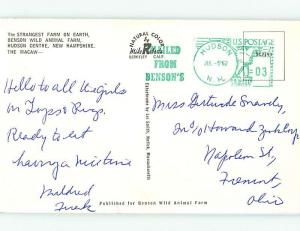 The STRANGEST FARM ON EARTH,
BENSON WILD ANIMAL FARM,
HUDSON CENTRE, NEW HAMPSHIRE.
THE MACAW—
NATURAL COLOR
BERKELEY CALIF.
MAILED
FROM
BENSON'S
HUDSON
N.H.
U.S. POSTAGE
03
Hello to all the girls
in Toys & Rugs.
Ready to eat
having a nice time
Mildred
Miss Gertrude
c/o Howard Zink Corp
Napoleon St,
Fremont,
Ohio
Published for Benson Wild Animal Farm